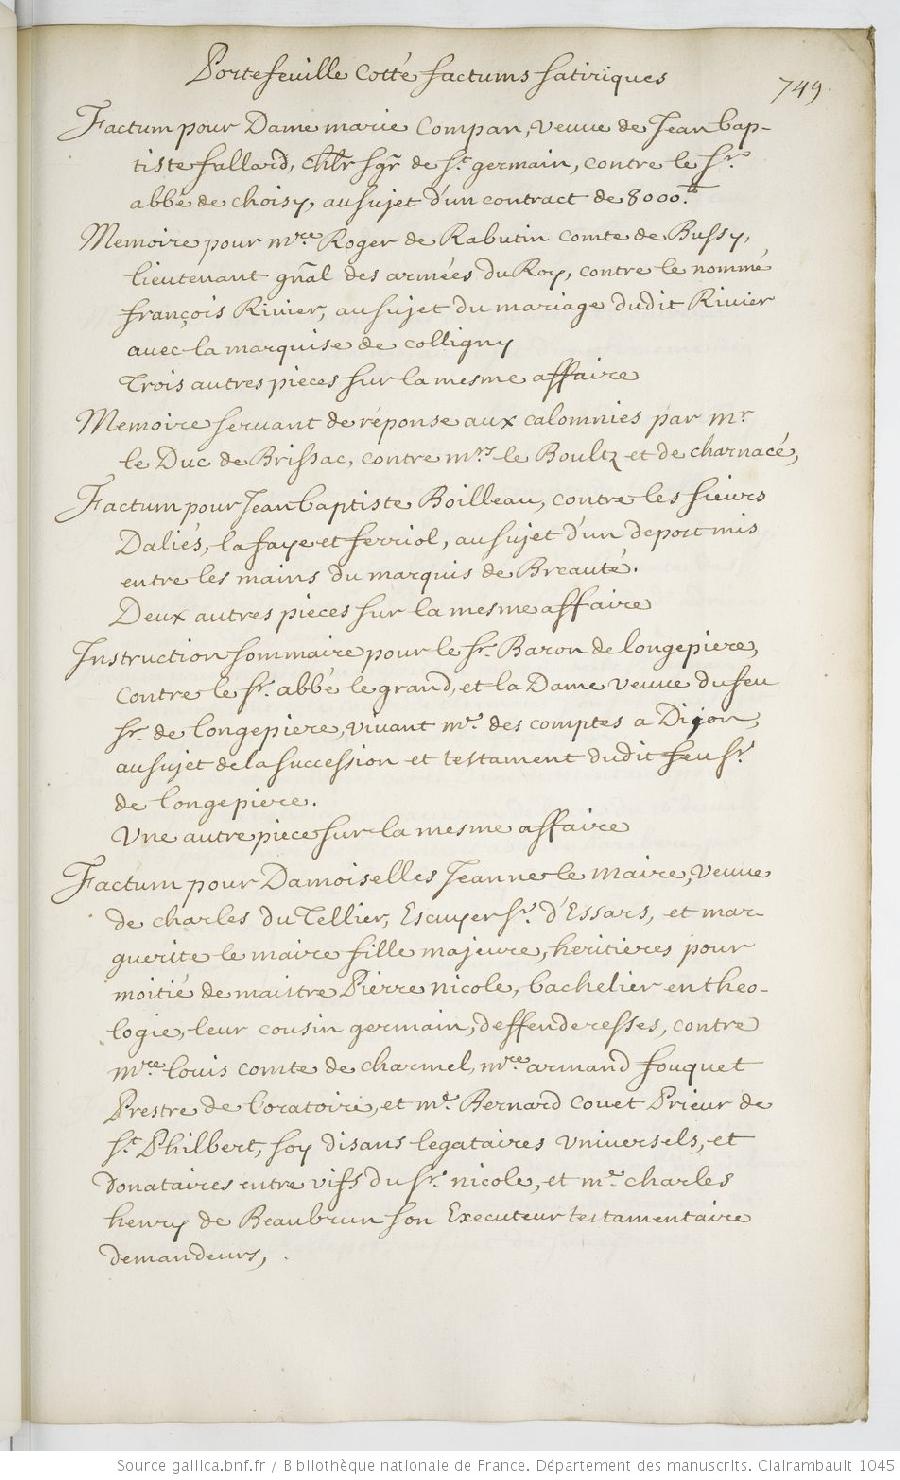 Portefeuille Cotté factums satiriques
749.
Factum pour Dame marie Compan, veuve de Jean bap-
tiste fallard, chlr sgr de st germain, contre le sr.
abbé de choisy, au sujet d'un contract de 8000.lt
Memoire pour mre. Roger de Rabutin comte de Bussy,
lieutenant gñal des armées du Roy, contre le nommé
françois Rivier, au sujet du mariage dudit Rivier
avec la marquise de colligny
Trois autres pieces sur la mesme affaire
Memoire servant de réponse aux calomnies par mr.
le Duc de Brissac, contre mrs. le Boultz et de charnacé,
Factum pour Jean baptiste Boilleau, contre les sieurs
Daliés, la faye et ferriol, au sujet d'un deport mis
entre les mains du marquis de Breauté.
Deux autres pieces sur la mesme affaire
Instruction sommaire pour le sr. Baron de longepiere,
contre le sr. abbé le grand, et la Dame veuve du feu
sr. de longepiere, vivant me. des comptes a Dijon,
au sujet de la succession et testament dudit feu sr.
de longepiere.
Une autre piece sur la mesme affaire
Factum pour Damoiselles Jeanne le maire, veuve
de charles du Tellier, Escuyer sr. d'Essars, et mar-
guerite le maire fille majeure, heritieres pour
moitié de maistre Pierre nicole, bachelier en theo-
logie, leur cousin germain, deffenderesses, contre
mre. louis comte de charmel, mre. armand fouquet
Prestre de l'oratoire, et me. Bernard couet Prieur de
st. Philbert, soy disans legataires universels, et
donataires entre vifs du sr. nicole, et me. charles
henry de Beaubrun son Executeur testamentaire
demandeurs,
Source gallica.bnf.fr / Bibliothèque nationale de France. Département des manuscrits. Clairambault 1045